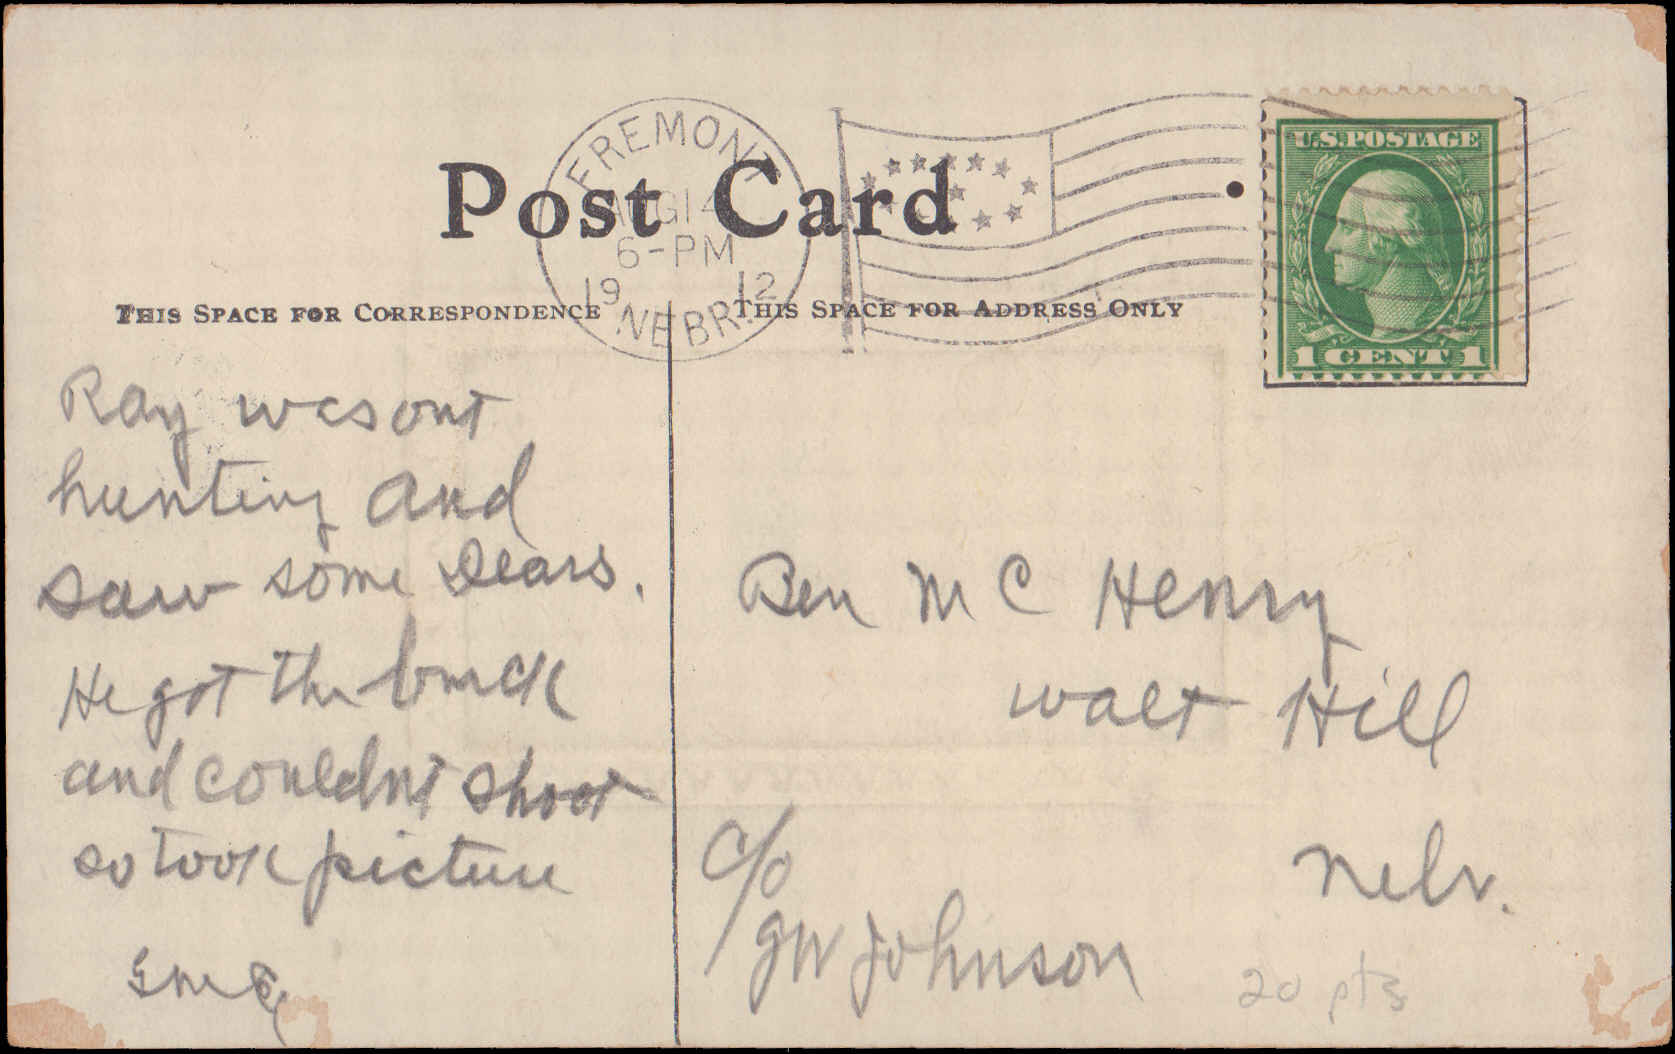 FREMONT
AUG 14
6-PM
19 12
NEBR.
Post Card
U.S. POSTAGE
1 CENT 1
THIS SPACE FOR CORRESPONDENCE
THIS SPACE FOR ADDRESS ONLY
Ray was out
hunting and
saw some Dears.
He got the buck
and couldnt shoot
so took picture
Ben Mc Henry
Walt Hill
Nebr.
c/o
GW Johnson
20 pts